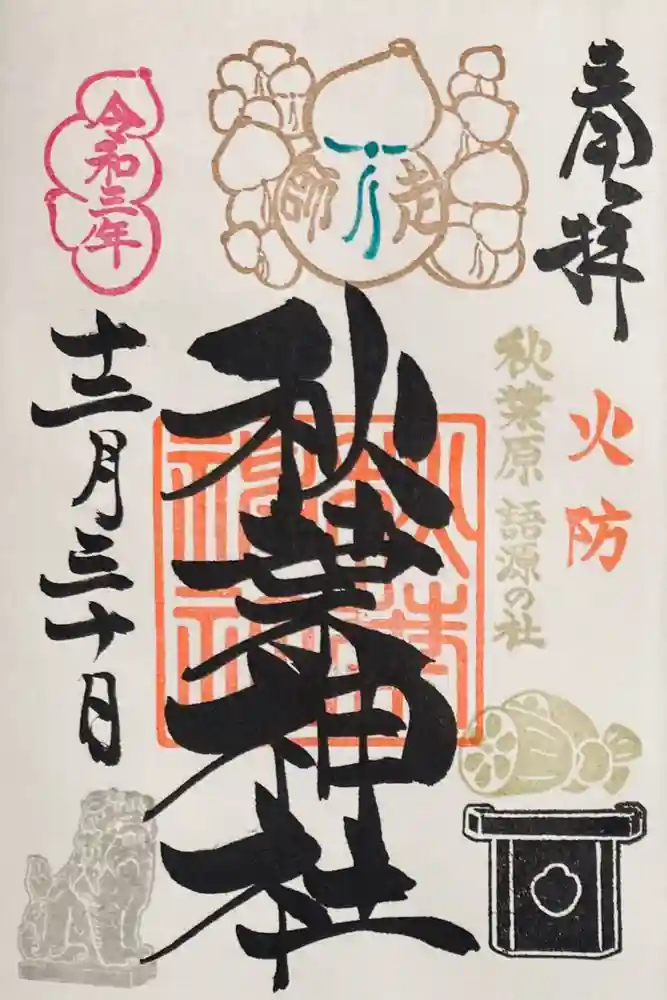 奉拝
火防
秋葉原 語源の社
師走
秋葉神社
秋葉神社
令和三年
十二月三十日